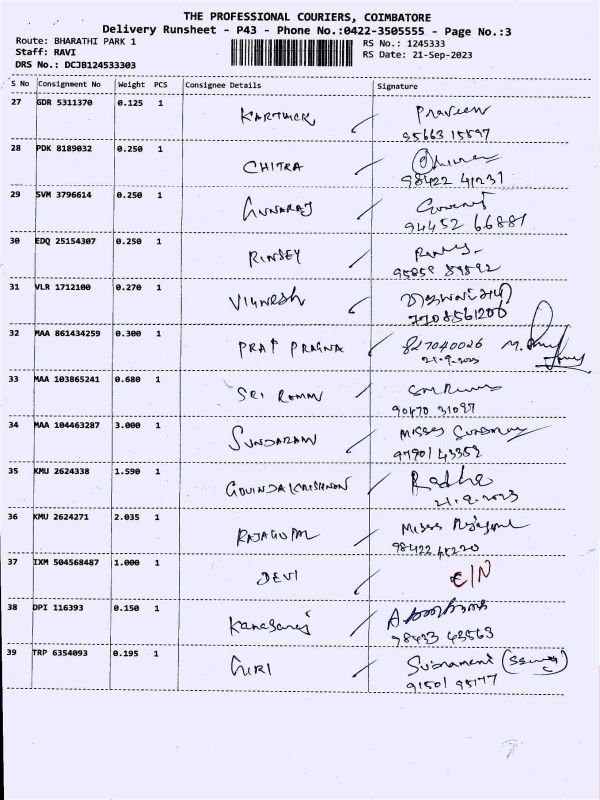 THE PROFESSIONAL COURIERS, COIMBATORE
Delivery Runsheet - P43 - Phone No.:0422-3505555 - Page No.:3
Route: BHARATHI PARK 1 RS No.: 1245333
Staff: RAVI RS Date: 21-Sep-2023
DRS No.: DCJB124533303
S No Consignment No Weight PCS Consignee Details Signature
27 GDR 5311370 0.125 1 KARTHICK Praveen
95663 15897
28 PDK 8189032 0.250 1 CHITRA
98422 41231
29 SVM 3796614 0.250 1 GUNARAJ
94452 66881
30 EDQ 25154307 0.250 1 RINSEY
31 VLR 1712100 0.270 1 VIGNESH
7708561206
32 MAA 861434259 0.300 1 PRAJ PRAGNA
21.9.2023
33 MAA 103865241 0.680 1 SRI RAMAN
90470 31097
34 MAA 104463287 3.000 1 SUNDARAM Misses
97901 43352
35 KMU 2624338 1.590 1 GOVINDAKRISHNAN Radha
21.9.2023
36 KMU 2624271 2.035 1 RAJAGOPAL Misses Rajagopal
98422 48220
37 IXM 504568487 1.000 1 DEVI C/N
38 DPI 116393 0.150 1 Kanagaraj
98433 43563
39 TRP 6354093 0.195 1 GIRI Subramani
91501 95177